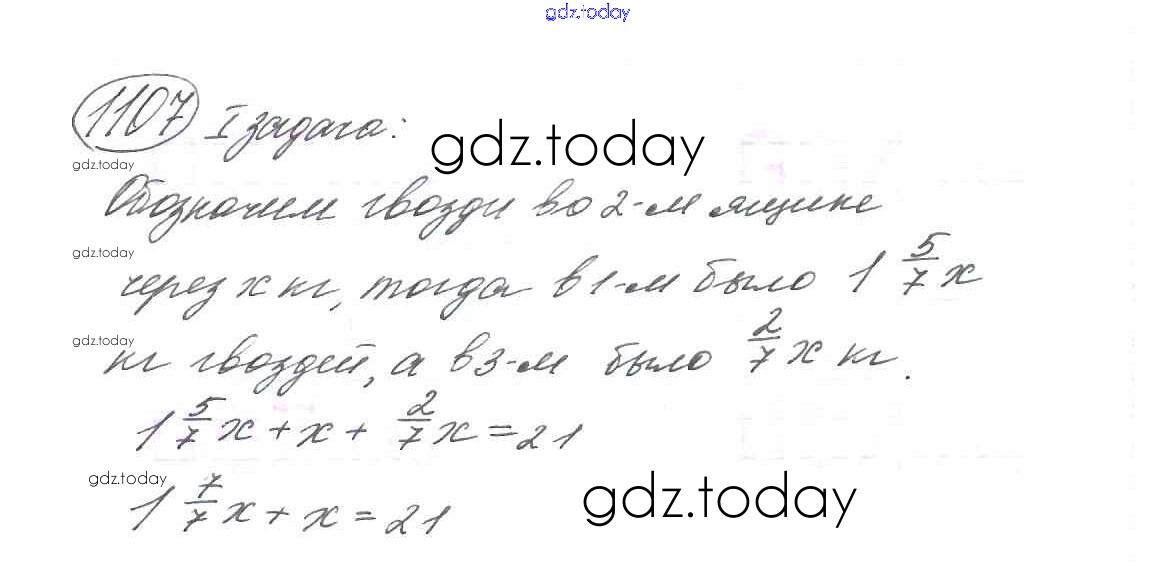 gdz.today
1107 I задача:
gdz.today
gdz.today
Обозначим гвозди во 2-м ящике
gdz.today
через x кг, тогда в 1-м было 1 5/7 x
gdz.today
кг гвоздей, а в 3-м было 2/7 x кг.
1 5/7 x + x + 2/7 x = 21
gdz.today
gdz.today
1 7/7 x + x = 21